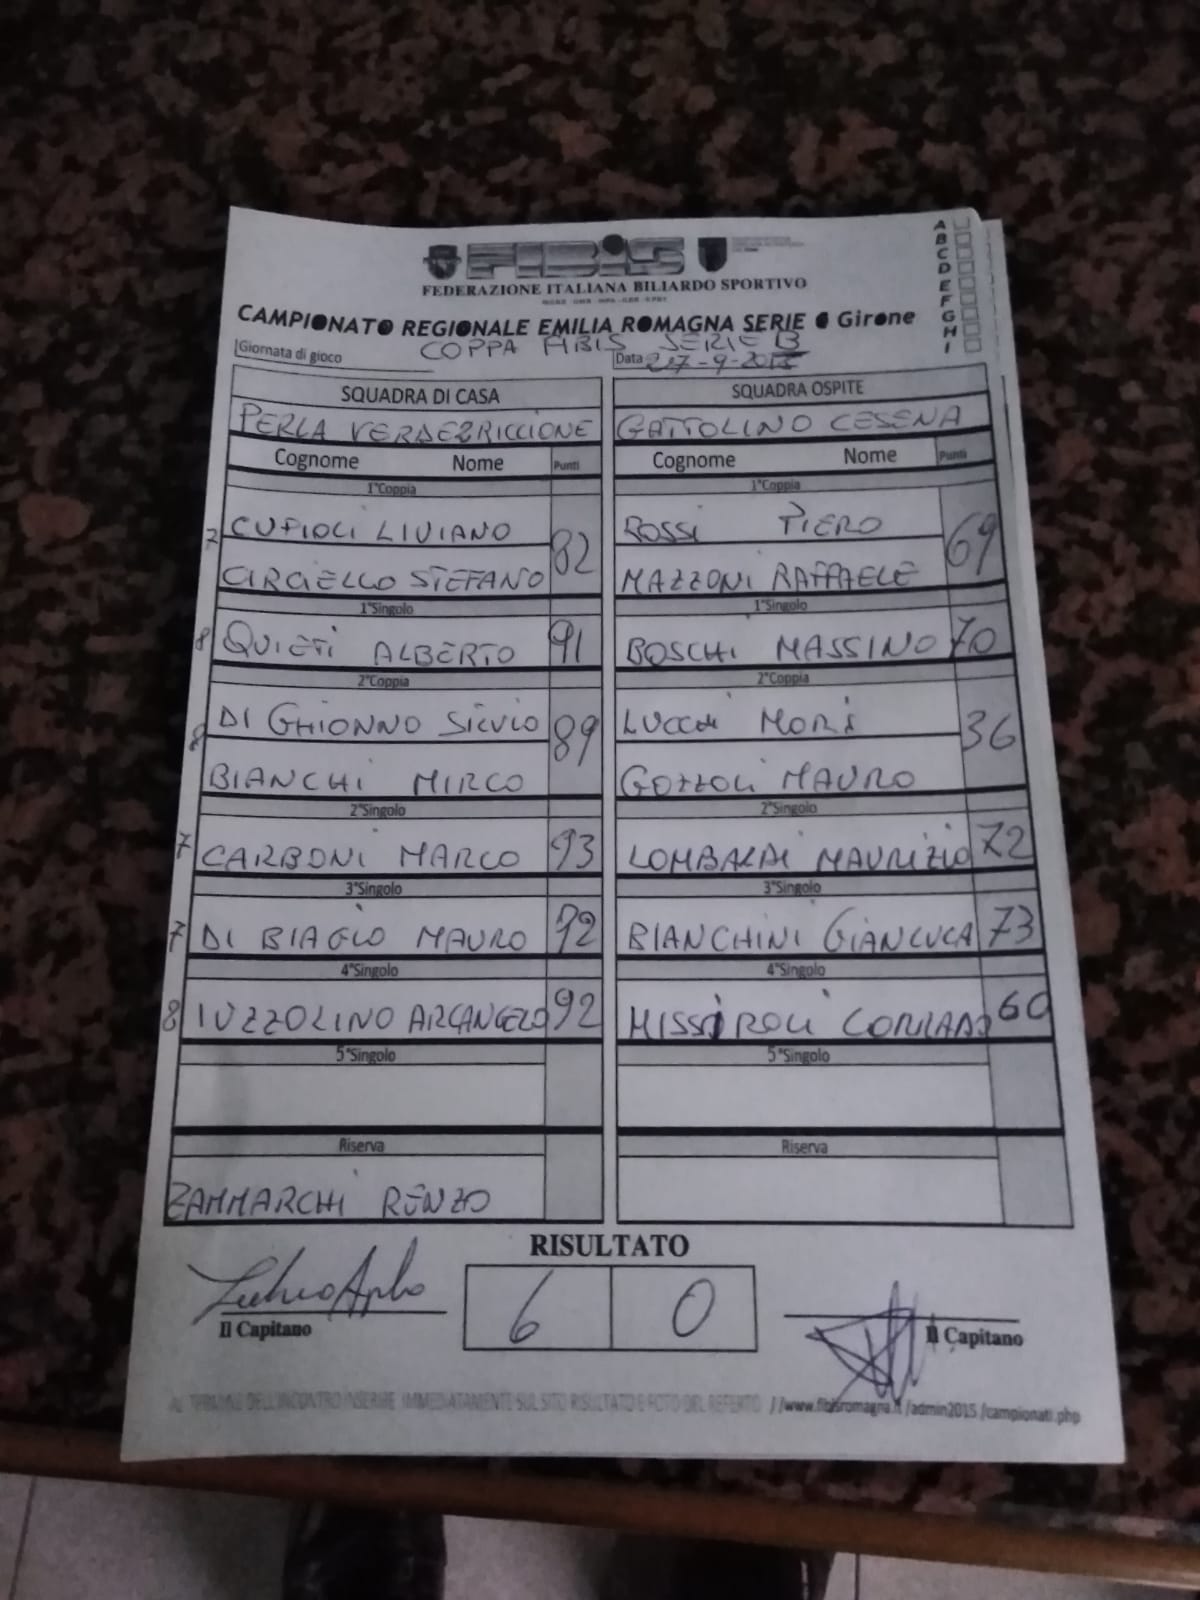 FIBiS
FEDERAZIONE ITALIANA BILIARDO SPORTIVO
CAMPIONATO REGIONALE EMILIA ROMAGNA SERIE Girone
A
B
C
D
E
F
G
H
I
COPPA FIBIS SERIE B
Giornata di gioco
Data
SQUADRA DI CASA SQUADRA OSPITE
PERLA VERDE RICCIONE GATTOLINO CESENA
Cognome Nome Punti Cognome Nome Punti
1°Coppia 1°Coppia
7 CUPIOLI LIVIANO 82 ROSSI PIERO 69
CIRCIELLO STEFANO MAZZONI RAFFAELE
1°Singolo 1°Singolo
8 QUIETI ALBERTO 91 BOSCHI MASSINO 70
2°Coppia 2°Coppia
8 DI GHIONNO SILVIO 89 LUCCHI MORI 36
BIANCHI MIRCO GOZZOLI MAURO
2°Singolo 2°Singolo
7 CARBONI MARCO 93 LOMBARDI MAURIZIO 72
3°Singolo 3°Singolo
7 DI BIAGIO MAURO 92 BIANCHINI GIANLUCA 73
4°Singolo 4°Singolo
8 IUZZOLINO ARCANGELO 92 MISSIROLI CORRADO 60
5°Singolo 5°Singolo
Riserva Riserva
ZAMMARCHI RENZO
RISULTATO
6 0
Il Capitano Il Capitano
AL TERMINE DELL'INCONTRO INSERIRE IMMEDIATAMENTE SUL SITO RISULTATO E FOTO DEL REFERTO //www.fibisromagna.it /admin2015 /campionati.php